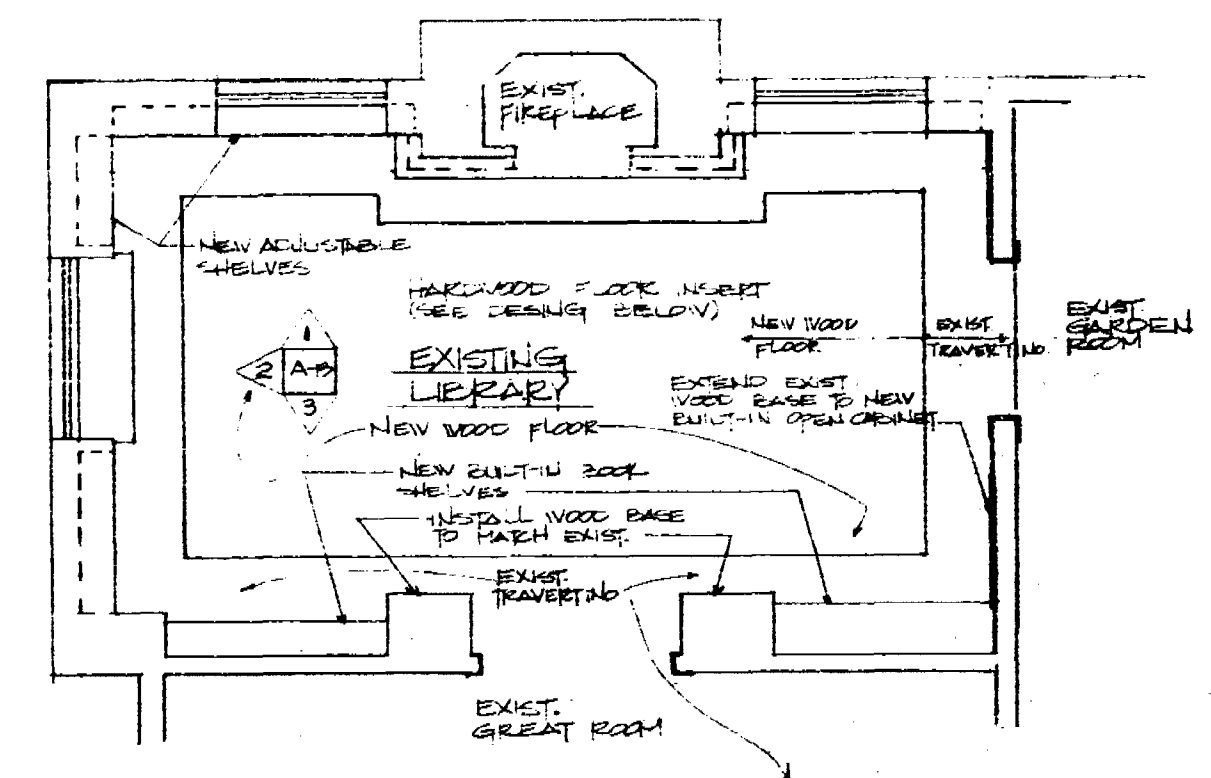 EXIST.
FIREPLACE
NEW ADJUSTABLE
SHELVES
HARDWOOD FLOOR INSERT
(SEE DESING BELOW)
NEW WOOD
FLOOR
EXIST.
TRAVERTINO
EXIST.
GARDEN
ROOM
1
2 A-13
3
EXISTING
LIBRARY
EXTEND EXIST
WOOD BASE TO NEW
BUILT-IN OPEN CABINET
NEW WOOD FLOOR
NEW BUILT-IN BOOK
SHELVES
INSTALL WOOD BASE
TO MATCH EXIST.
EXIST.
TRAVERTINO
EXIST.
GREAT ROOM